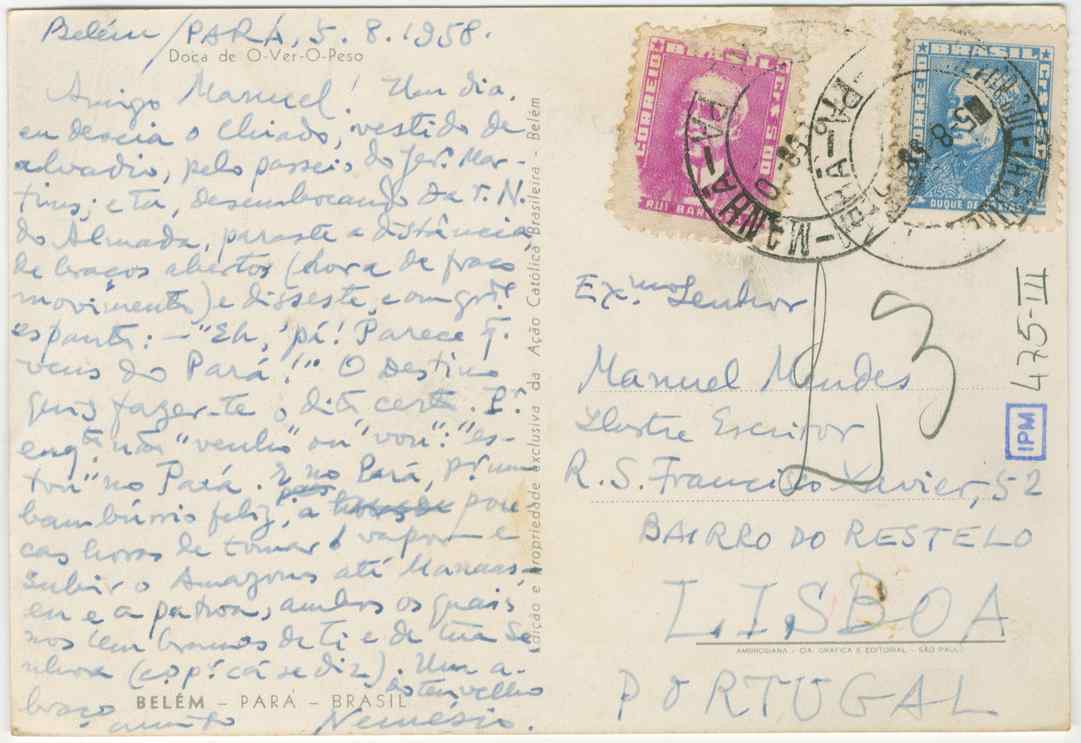 Belém/PARÁ, 5.8.1958.
Doca de O-Ver-O-Peso
Amigo Manuel! Um dia,
eu descia o Chiado, vestido de
alvadio, pelo passeio do Jer.º Mar-
tins; e tu, desembocando da T. N.
do Almada, paraste a distância
de braços abertos (hora de fraco
movimento) e disseste, com gr.de
espanto: — "Eh, 'pá! Parece q.
vens do Pará!" O Destino
quis fazer-te o dito certo. P.r
enq.to não "venho" ou "vou": "es-
tou" no Pará. E no Pará, p.r um
bambúrrio feliz, a pou-
cas horas de tomar o vapor e
subir o Amazonas até Manaus,
eu e a patroa, ambos os quais
nos lembramos de ti e de tua Se-
nhora (esp. cá se diz). Um a-
braço do teu velho
amigo Nemésio.
BELÉM - PARÁ - BRASIL
Edição e propriedade exclusiva da Ação Católica Brasileira - Belém
BRASIL
CORREIO
RUI BAR
BRASIL
CORREIO
DUQUE DE
Ex.mo Senhor
Manuel Mendes
Ilustre Escritor
R. S. Francisco Xavier, 52
BAIRRO DO RESTELO
LISBOA
PORTUGAL
AMBROSIANA - CIA. GRÁFICA E EDITORIAL - SÃO PAULO
L3
475-III
IPM